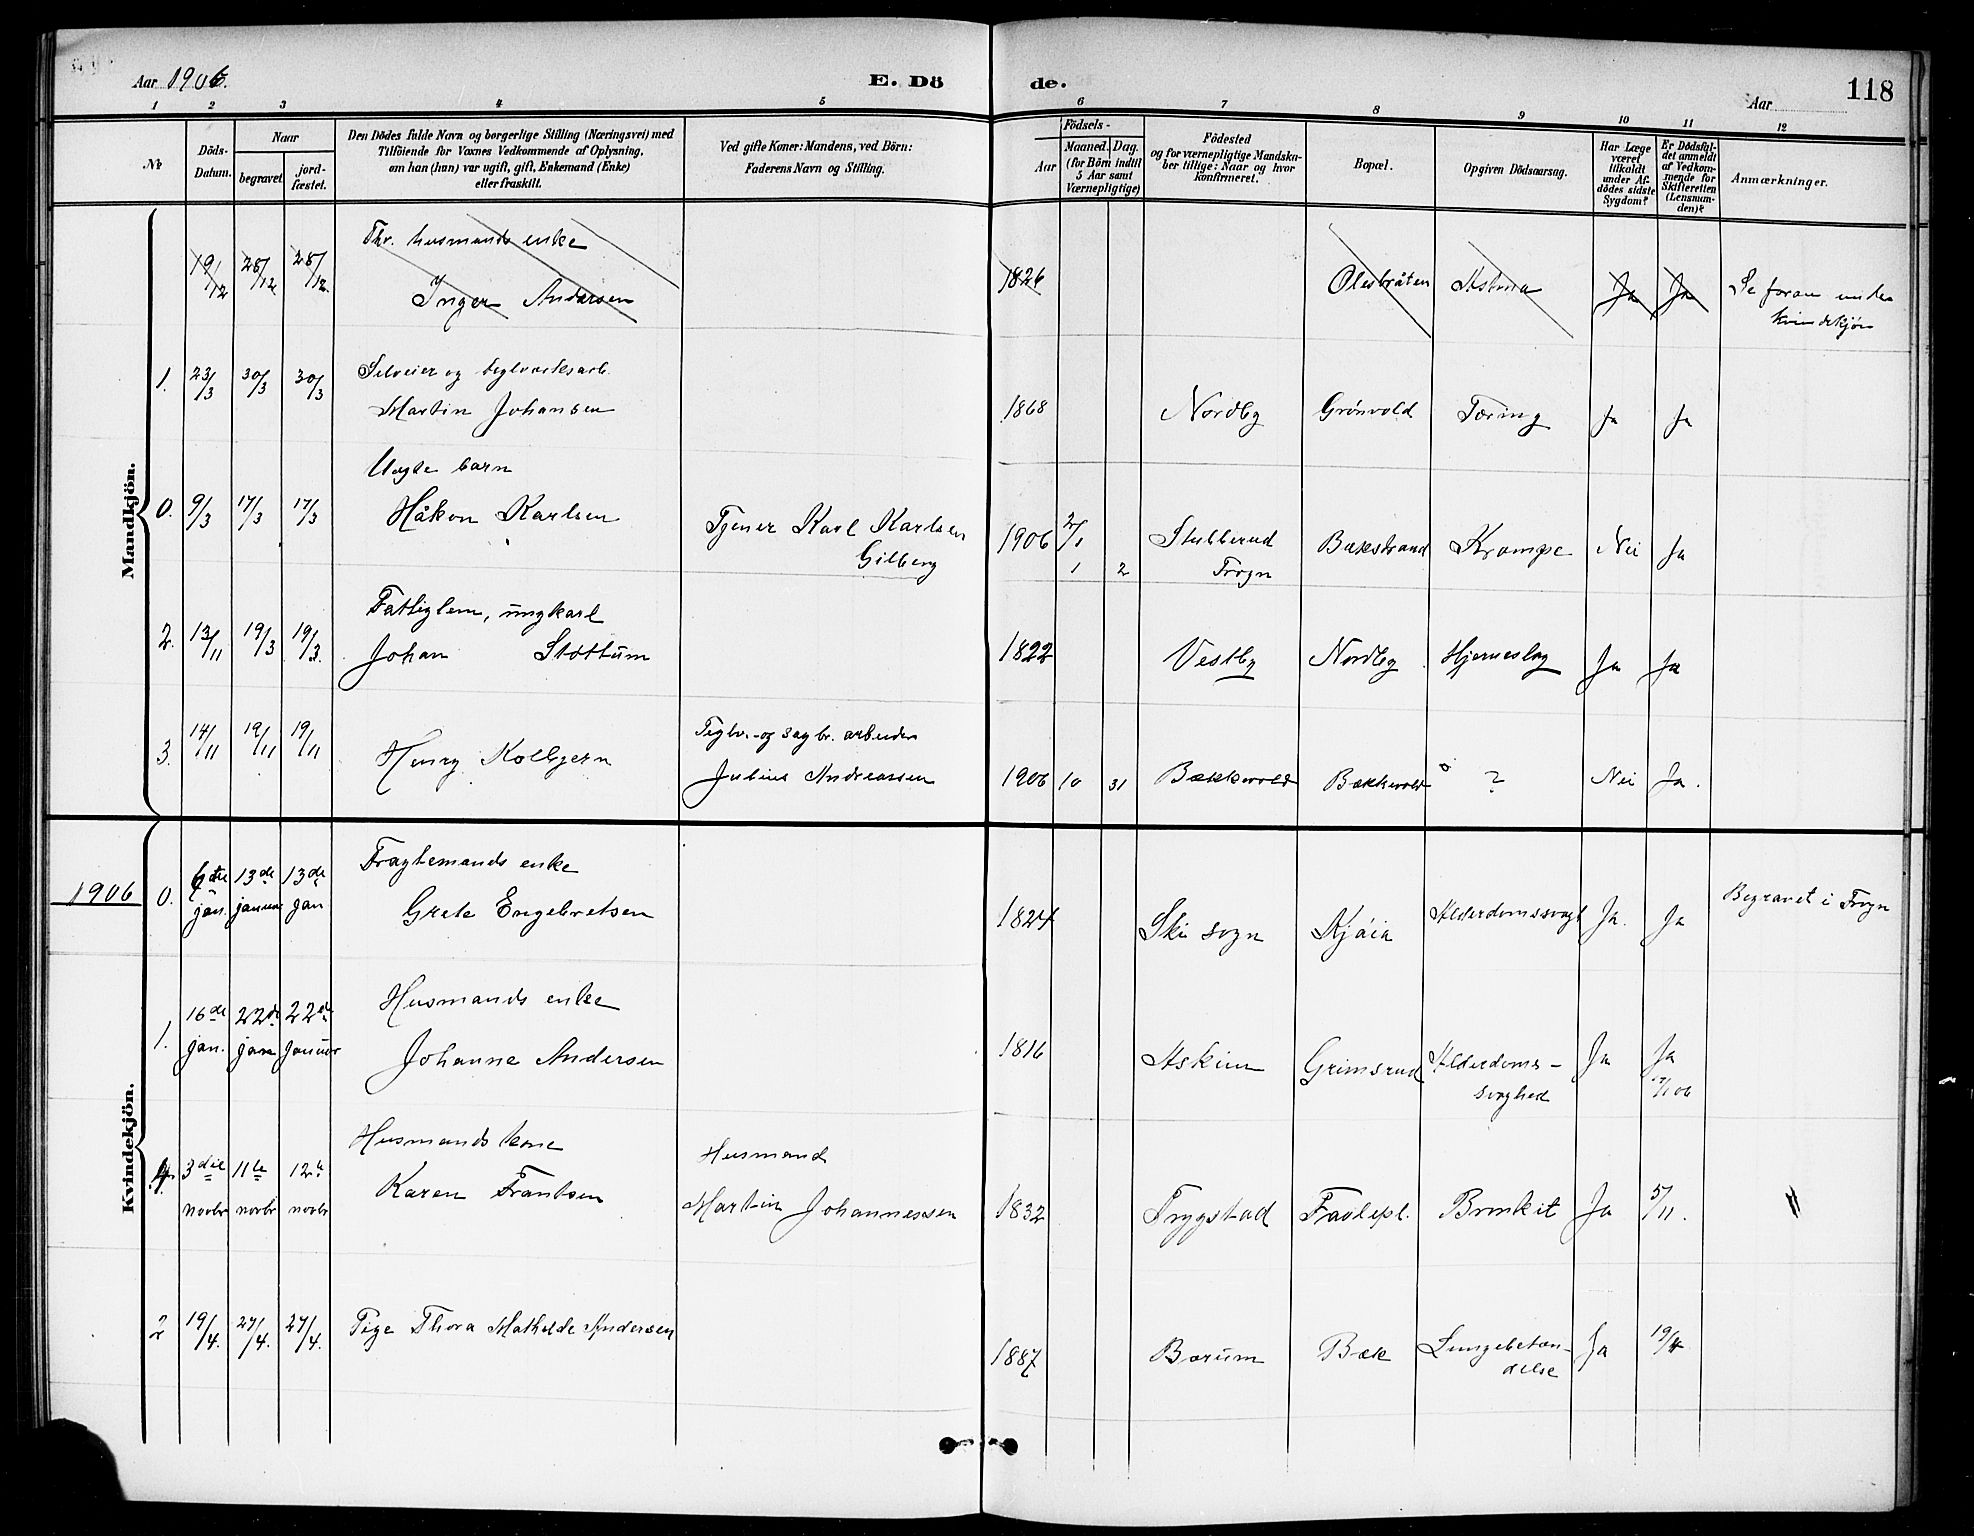 Aar 1906.
E. Dö
de.
Aar
118
1 2 3 4 5 6 7 8 9 10 11 12
№
Döds-
Datum.
Naar
begravet.
jord-
fæstet.
Den Dödes fulde Navn og borgerlige Stilling (Næringsvei) med
Tilföiende for Voxnes Vedkommende af Oplysning,
om han (hun) var ugift, gift, Enkemand (Enke)
eller fraskilt.
Ved gifte Koner: Mandens, ved Börn:
Faderens Navn og Stilling.
Födsels-
Aar
Maaned. Dag.
(for Börn indtil
5 Aar samt
Værnepligtige)
Födested
og for værnepligtige Mandskа-
ber tillige: Naar og hvor
konfirmeret.
Bopæl.
Opgiven Dödsaarsag.
Har Læge
været
tilkaldt
under Af-
dödes sidste
Sygdom?
Er Dödsfal-
det anmeldt
af Vedkom-
mende for
Skifteretten
(Lensman-
den)?
Anmærkninger.
Mandkjön.
19/12 28/12 28/12 Fhv. husmands enke
Inger Andersen
1826 Olesbråten Astma Ja Ja Se foran under
kvindekjøn
1. 23/3 30/3 30/3 Selveier og teglverksarb.
Martin Johansen
1868 Nordby Grönvold Tæring Ja Ja
0. 9/3 17/3 17/3 Uægte barn
Håkon Karlsen Tjener Karl Karlsen
Gilberg
1906 2/1 Stubberud Bækstrand Krampe Nei Ja
1 2 Frogn
2. 13/11 19/3 19/3. Fattiglem, ungkarl
Johan Støttum
1822 Vestby Nordby Hjerneslag Ja Ja
3. 14/11 19/11 19/11 Teglv.- og sagbr. arbeider
Henry Kolbjørn Julius Andreassen
1906 10 31 Bækkevold Bækkevold ? Nei Ja.
Kvindekjön.
1906 0. 6te jan. 13de januar 13de jan Fragtemands enke
Grete Engebretsen
1824 Ski sogn Kjøia Alderdomssvagh Ja. Ja Begravet i Frogn
1. 16de jan. 22de jan 22de januar Husmands enke
Johanne Andersen
1816 Askim Grimsrud Alderdoms-
svaghed Ja Ja
/1 06
4. 3die novbr 11te novbr 12te novbr Husmands kone
Karen Frantsen Husmand
Martin Johannessen
1832 Trygstad Faulepl. Bronkit Ja 5/11.
2 19/4. 27/4. 27/4. Pige Thora Mathilde Andersen
1887 Bærum Bæk Lungebetæn-
delse Ja 19/4